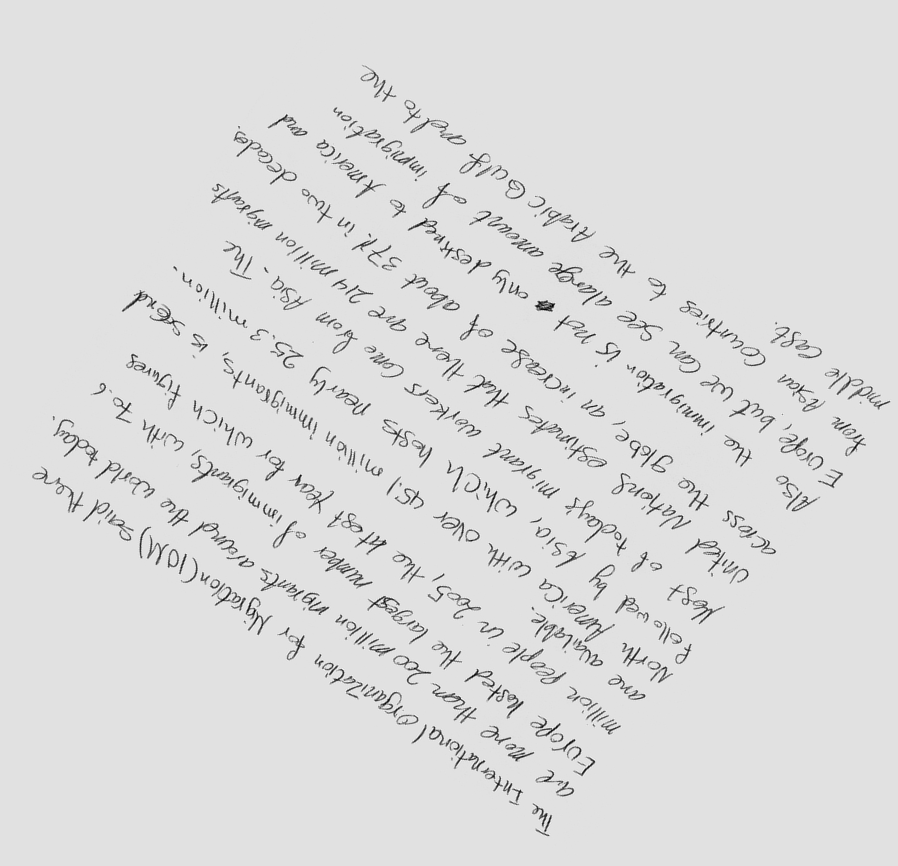 The International Organization for Migration (IOM) said there
are more than 200 million migrants around the world today.
Europe hosted the largest number of immigrants, with 70.6
million people in 2005, the latest year for which figures
are available.
North America with over 45.1 million immigrants, is send
followed by Asia, which hosts nearly 25.3 million.
Most of today's migrant workers come from Asia. The
United Nations estimates that there are 214 million migrants
across the globe, an increase of about 37% in two decades.
Also the immigration is not only destined to America and
Europe, but we can see alarge amount of immigration
from Asian countries to the Arabic Gulf and to the
middle east.